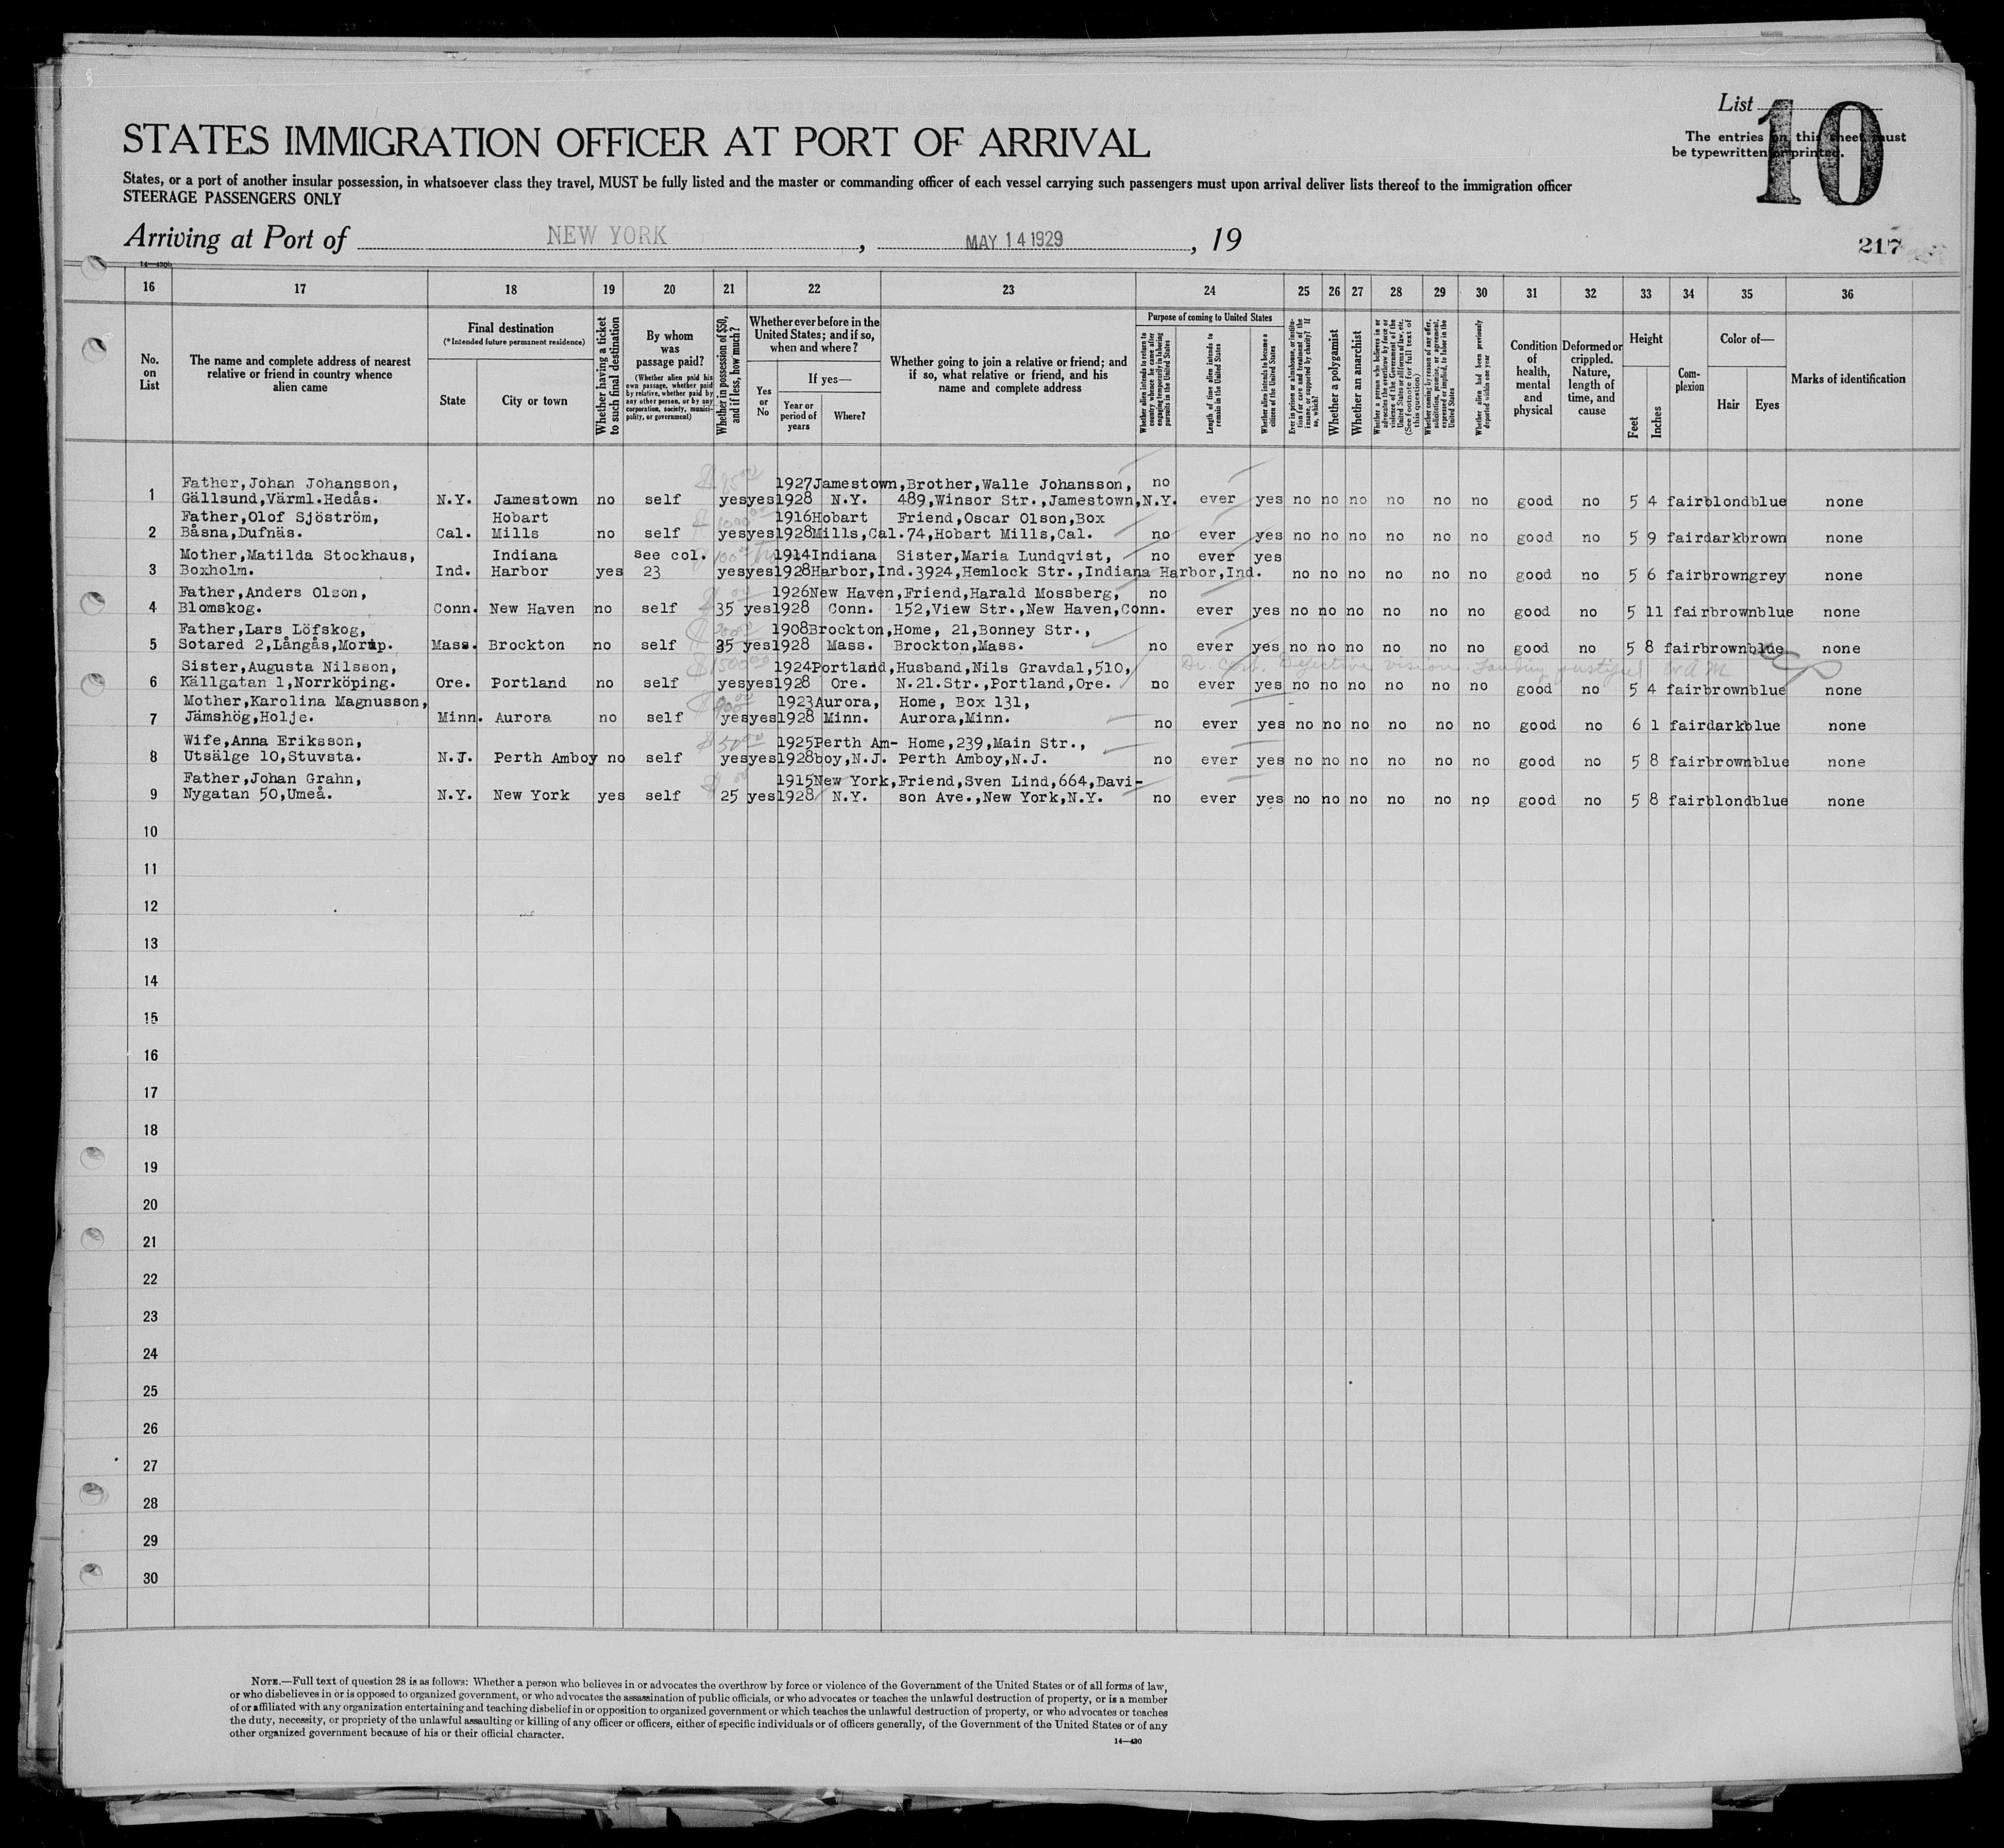 List 10
The entries on this sheet must
be typewritten or printed.
STATES IMMIGRATION OFFICER AT PORT OF ARRIVAL
States, or a port of another insular possession, in whatsoever class they travel, MUST be fully listed and the master or commanding officer of each vessel carrying such passengers must upon arrival deliver lists thereof to the immigration officer
STEERAGE PASSENGERS ONLY
Arriving at Port of NEW YORK, MAY 14 1929, 19
217
14—430b
16 17 18 19 20 21 22 23 24 25 26 27 28 29 30 31 32 33 34 35 36
No. on List
The name and complete address of nearest relative or friend in country whence alien came
Final destination
(*Intended future permanent residence)
State
City or town
Whether having a ticket to such final destination
By whom was passage paid?
(Whether alien paid his own passage, whether paid by relative, whether paid by any other person, or by any corporation, society, municipality, or government)
Whether in possession of $50, and if less, how much?
Whether ever before in the United States; and if so, when and where?
Yes or No
If yes—
Year or period of years
Where?
Whether going to join a relative or friend; and if so, what relative or friend, and his name and complete address
Purpose of coming to United States
Whether alien intends to return to country whence he came after engaging temporarily in laboring pursuits in the United States
Length of time alien intends to remain in the United States
Whether alien intends to become a citizen of the United States
Ever in prison or almshouse, or institution for care and treatment of the insane, or supported by charity? If so, which?
Whether a polygamist
Whether an anarchist
Whether a person who believes in or advocates the overthrow by force or violence of the Government of the United States or all forms of law, etc. (See footnote for full text of this question)
Whether coming by reason of any offer, solicitation, promise, or agreement, expressed or implied, to labor in the United States
Whether alien had been previously deported within one year
Condition of health, mental and physical
Deformed or crippled. Nature, length of time, and cause
Height
Feet
Inches
Complexion
Color of—
Hair
Eyes
Marks of identification
Father,Johan Johansson, 1927 Jamestown, Brother,Walle Johansson, no
1 Gällsund,Värml.Hedås. N.Y. Jamestown no self yes yes 1928 N.Y. 489,Winsor Str.,Jamestown,N.Y. ever yes no no no no no no good no 5 4 fair blond blue none
Father,Olof Sjöström, Hobart 1916 Hobart Friend,Oscar Olson,Box
2 Båsna,Dufnäs. Cal. Mills no self yes yes 1928 Mills,Cal. 74,Hobart Mills,Cal. no ever yes no no no no no no good no 5 9 fair dark brown none
Mother,Matilda Stockhaus, Indiana see col. 1914 Indiana Sister,Maria Lundqvist, no ever yes
3 Boxholm. Ind. Harbor yes 23 yes yes 1928 Harbor,Ind. 3924,Hemlock Str.,Indiana Harbor,Ind. no no no no no no good no 5 6 fair brown grey none
Father,Anders Olson, 1926 New Haven, Friend,Harald Mossberg, no
4 Blomskog. Conn. New Haven no self 35 yes 1928 Conn. 152,View Str.,New Haven,Conn. ever yes no no no no no no good no 5 11 fair brown blue none
Father,Lars Löfskog, 1908 Brockton, Home, 21,Bonney Str.,
5 Sotared 2,Långås,Morup. Mass. Brockton no self 35 yes 1928 Mass. Brockton,Mass. no ever yes no no no no no no good no 5 8 fair brown blue none
Sister,Augusta Nilsson, $1500 1924 Portland, Husband,Nils Gravdal,510, Dr. Cert. Defective vision. Landing justified W.A.M
6 Källgatan 1,Norrköping. Ore. Portland no self yes yes 1928 Ore. N.21.Str.,Portland,Ore. no ever yes no no no no no no good no 5 4 fair brown blue none
Mother,Karolina Magnusson, 1923 Aurora, Home, Box 131,
7 Jämshög,Holje. Minn. Aurora no self yes yes 1928 Minn. Aurora,Minn. no ever yes no no no no no no good no 6 1 fair dark blue none
Wife,Anna Eriksson, $50 1925 Perth Am- Home,239,Main Str.,
8 Utsälge 10,Stuvsta. N.J. Perth Amboy no self yes yes 1928 boy,N.J. Perth Amboy,N.J. no ever yes no no no no no no good no 5 8 fair brown blue none
Father,Johan Grahn, 1915 New York, Friend,Sven Lind,664,Davi-
9 Nygatan 50,Umeå. N.Y. New York yes self 25 yes 1928 N.Y. son Ave.,New York,N.Y. no ever yes no no no no no no good no 5 8 fair blond blue none
10
11
12
13
14
15
16
17
18
19
20
21
22
23
24
25
26
27
28
29
30
NOTE.—Full text of question 28 is as follows: Whether a person who believes in or advocates the overthrow by force or violence of the Government of the United States or of all forms of law,
or who disbelieves in or is opposed to organized government, or who advocates the assassination of public officials, or who advocates or teaches the unlawful destruction of property, or is a member
of or affiliated with any organization entertaining and teaching disbelief in or opposition to organized government or which teaches the unlawful destruction of property, or who advocates or teaches
the duty, necessity, or propriety of the unlawful assaulting or killing of any officer or officers, either of specific individuals or of officers generally, of the Government of the United States or of any
other organized government because of his or their official character.
14—430